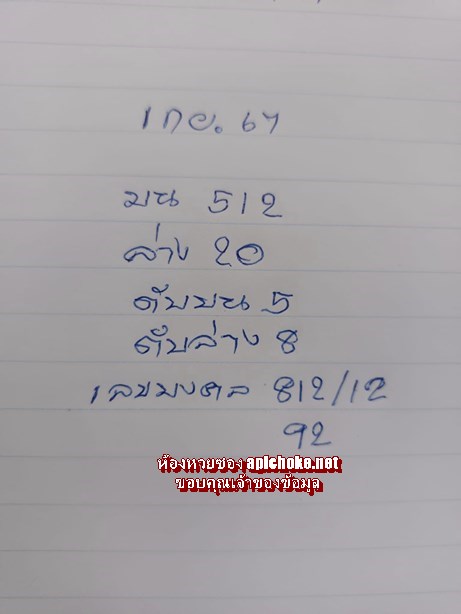 1 กย. 67
บน 512
ล่าง 20
ดับบน 5
ดับล่าง 8
เลขมงคล 812/12
92
ห้องหวยซอง apichoke.net
ขอบคุณเจ้าของข้อมูล